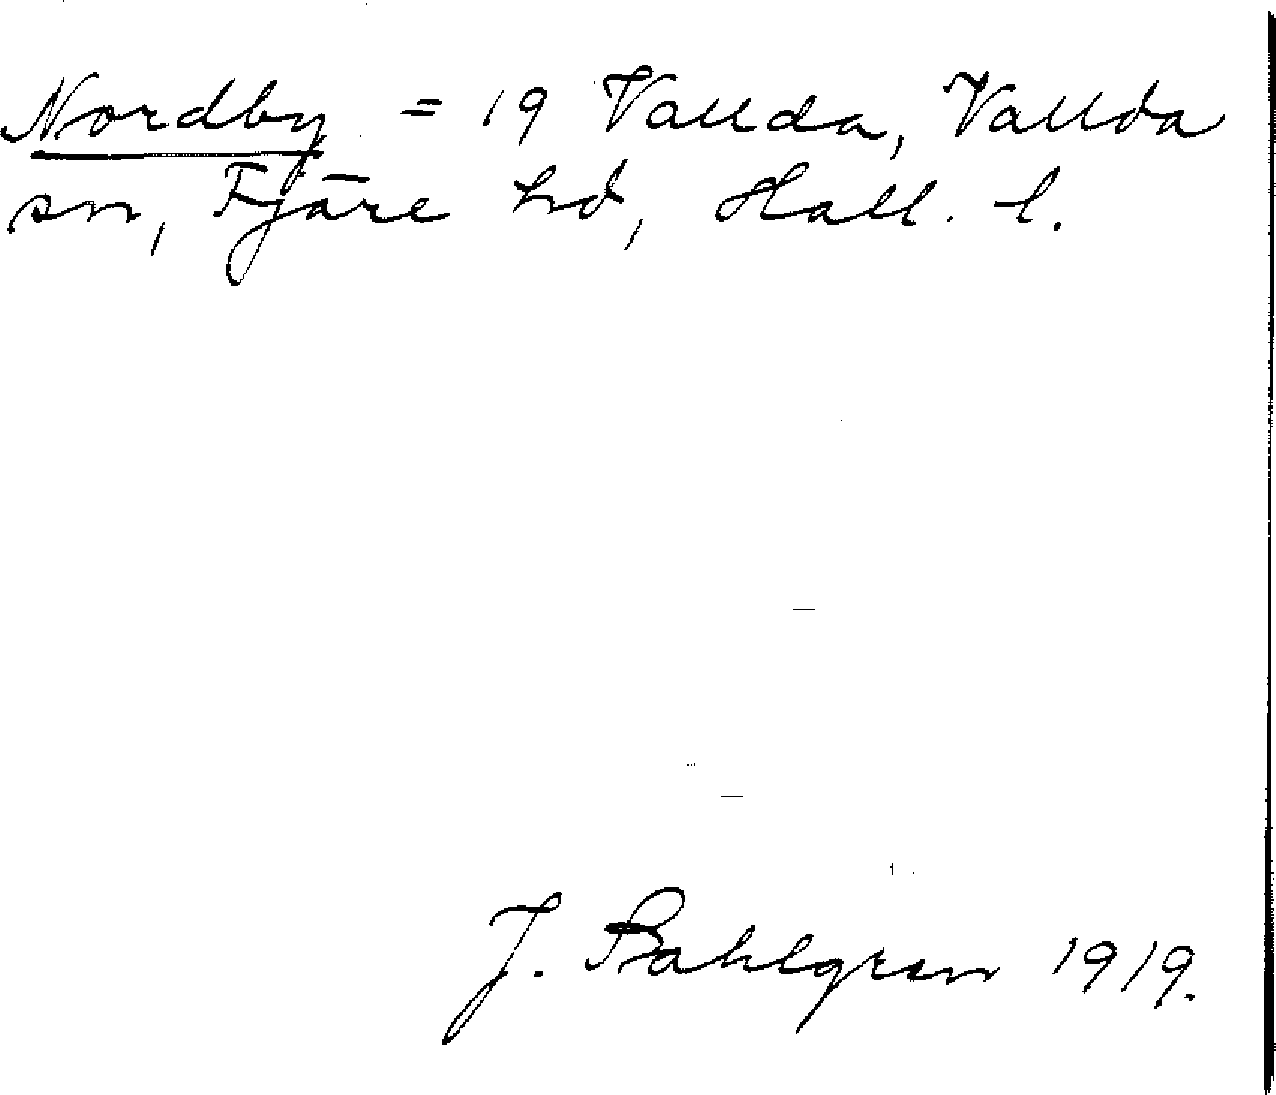 Nordby = 19 Vallda, Vallda
sn, Fjäre hd, Hall. l.
J. Sahlgren 1919.